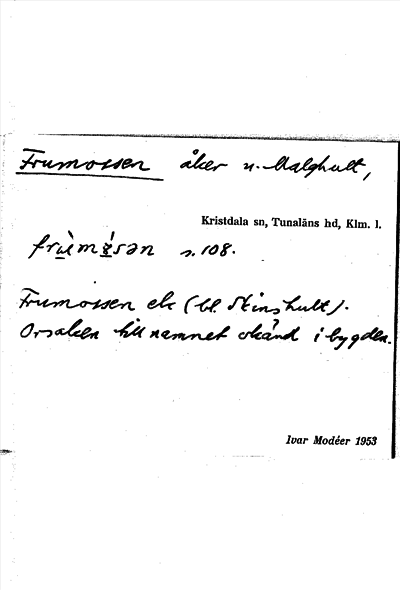 Frumossen åker u. Malghult,
Kristdala sn, Tunaläns hd, Klm. l.
s. 108.
Frumossen ek (bl. Stinshult).
Orsaken till namnet okänd i bygden.
Ivar Modéer 1953